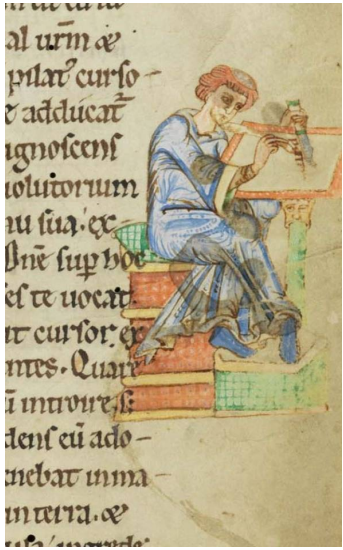 al urm̅ ⁊
pilat᷒ curso-
⁊ adducat̅
ignoscens
uolutorium
nu sua. ex
Dn̅e sup̅ hoc
es te uocat.
it cursor. ex
ntes. Quare
u̅ introire. s;
dens eu̅ ado-
nebat in ma-
in terra. ⁊